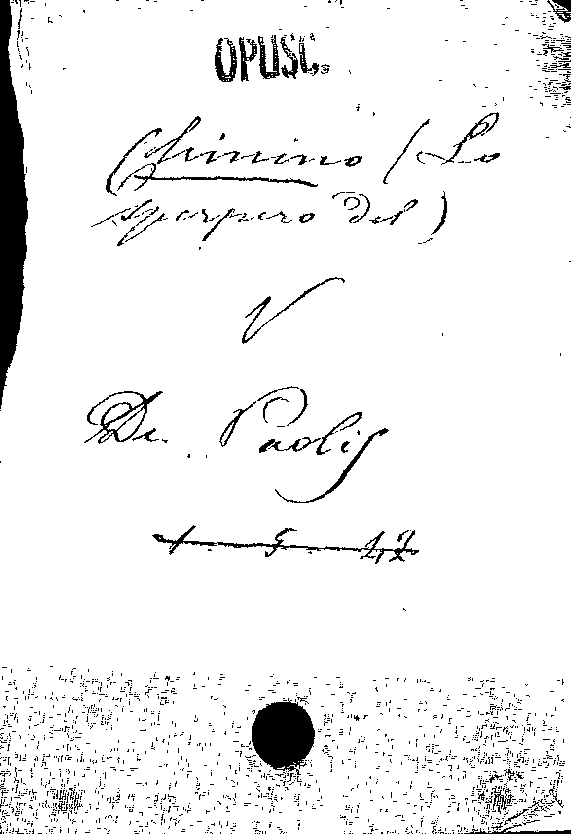 OPUSC.
Chinino (Lo
sperpero del)
V
De Paolis
1 5 47